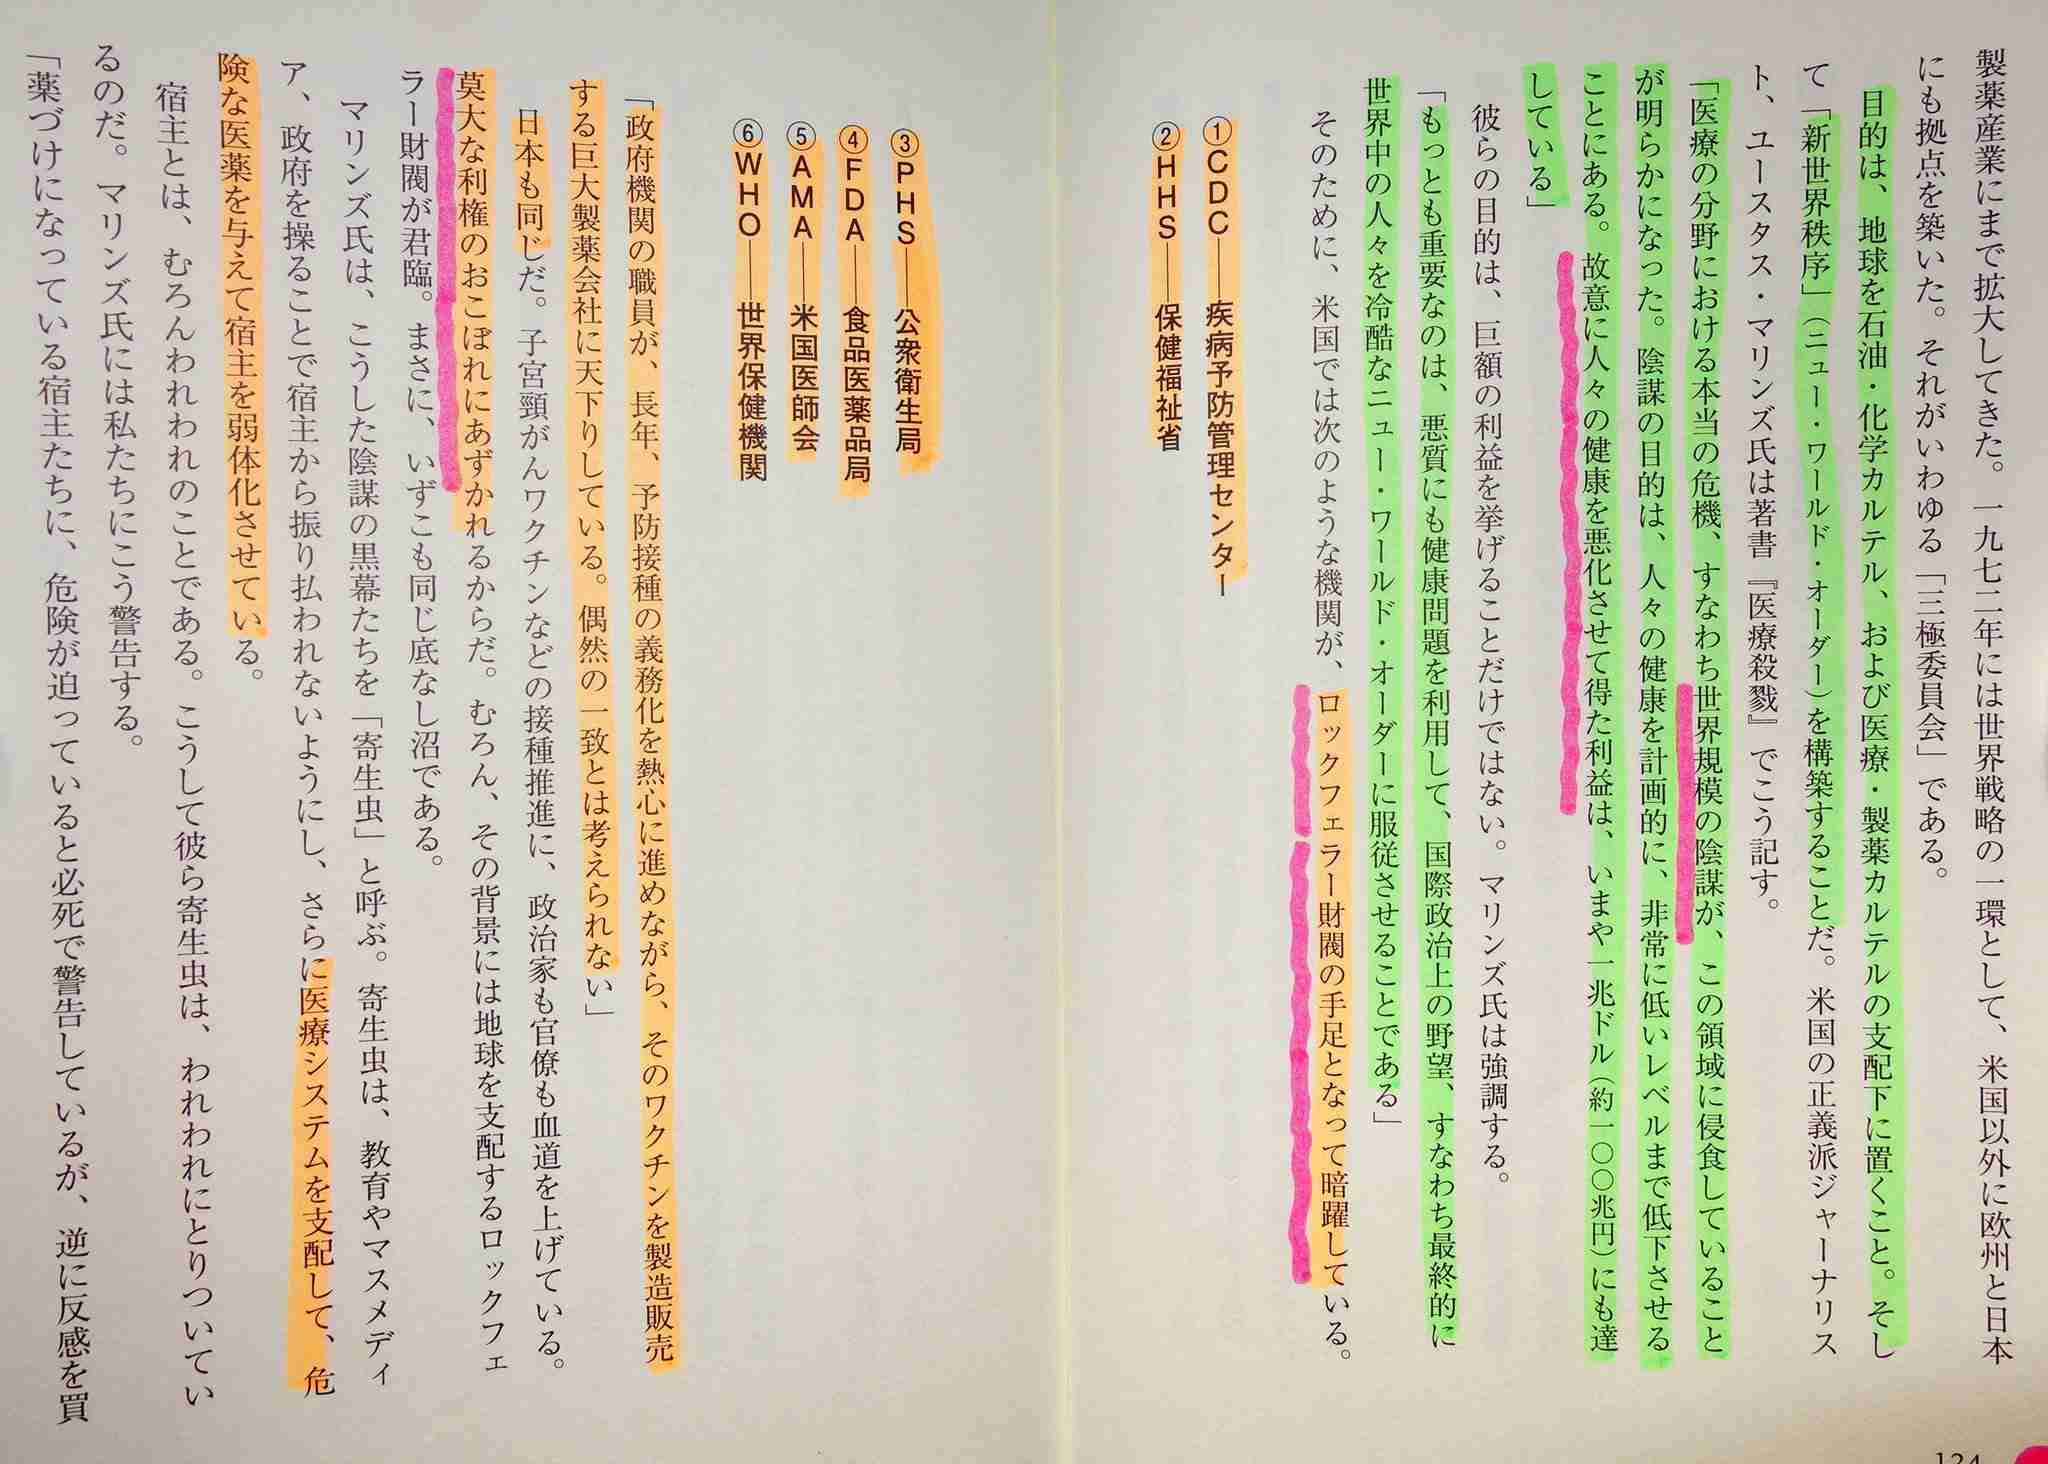 製薬産業にまで拡大してきた。一九七二年には世界戦略の一環として、米国以外に欧州と日本
にも拠点を築いた。それがいわゆる「三極委員会」である。
目的は、地球を石油・化学カルテル、および医療・製薬カルテルの支配下に置くこと。そし
て「新世界秩序」（ニュー・ワールド・オーダー）を構築することだ。米国の正義派ジャーナリス
ト、ユースタス・マリンズ氏は著書『医療殺戮』でこう記す。
「医療の分野における本当の危機、すなわち世界規模の陰謀が、この領域に侵食していること
が明らかになった。陰謀の目的は、人々の健康を計画的に、非常に低いレベルまで低下させる
ことにある。故意に人々の健康を悪化させて得た利益は、いまや一兆ドル（約一〇〇兆円）にも達
している」
彼らの目的は、巨額の利益を挙げることだけではない。マリンズ氏は強調する。
「もっとも重要なのは、悪質にも健康問題を利用して、国際政治上の野望、すなわち最終的に
世界中の人々を冷酷なニュー・ワールド・オーダーに服従させることである」
そのために、米国では次のような機関が、ロックフェラー財閥の手足となって暗躍している。
①CDC──疾病予防管理センター
②HHS──保健福祉省
③PHS──公衆衛生局
④FDA──食品医薬品局
⑤AMA──米国医師会
⑥WHO──世界保健機関
「政府機関の職員が、長年、予防接種の義務化を熱心に進めながら、そのワクチンを製造販売
する巨大製薬会社に天下りしている。偶然の一致とは考えられない」
日本も同じだ。子宮頸がんワクチンなどの接種推進に、政治家も官僚も血道を上げている。
莫大な利権のおこぼれにあずかれるからだ。むろん、その背景には地球を支配するロックフェ
ラー財閥が君臨。まさに、いずこも同じ底なし沼である。
マリンズ氏は、こうした陰謀の黒幕たちを「寄生虫」と呼ぶ。寄生虫は、教育やマスメディ
ア、政府を操ることで宿主から振り払われないようにし、さらに医療システムを支配して、危
険な医薬を与えて宿主を弱体化させている。
宿主とは、むろんわれわれのことである。こうして彼ら寄生虫は、われわれにとりついてい
るのだ。マリンズ氏には私たちにこう警告する。
「薬づけになっている宿主たちに、危険が迫っていると必死で警告しているが、逆に反感を買
124